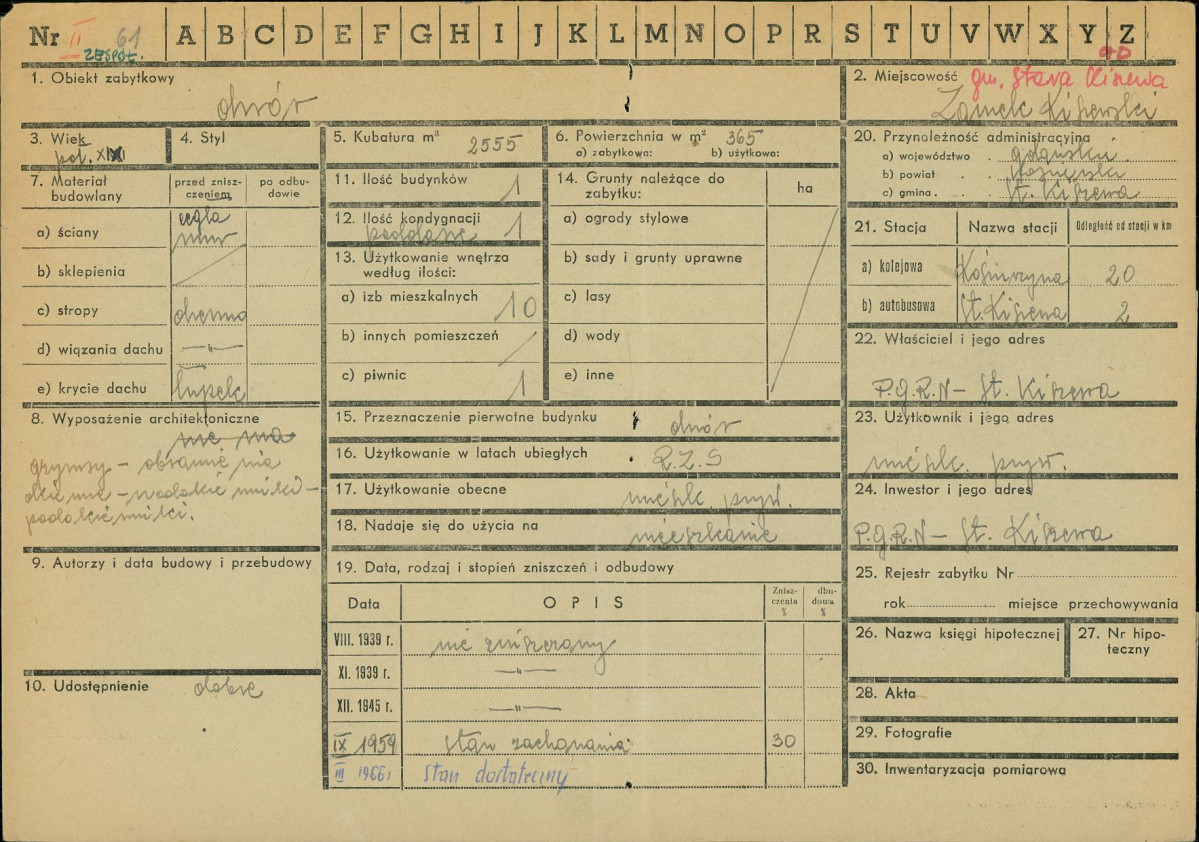 Nr II 61 A B C D E F G H I J K L M N O P R S T U V W X Y Z
ZESPÓŁ.
1. Obiekt zabytkowy
dwór
2. Miejscowość gm. Stara Kiszewa
Zamek Kiszewski
3. Wiek
poł. XIX
4. Styl
5. Kubatura m³ 2555
6. Powierzchnia w m² 365
a) zabytkowa: b) użytkowa:
7. Materiał budowlany
przed znisz-
czeniem
po odbu-
dowie
a) ściany cegła
mur
b) sklepienia
c) stropy drewno
d) wiązania dachu —"—
e) krycie dachu łupek
8. Wyposażenie architektoniczne
nie ma
gzymsy – obramie nia
okienne –
9. Autorzy i data budowy i przebudowy
10. Udostępnienie dobre
11. Ilość budynków 1
12. Ilość kondygnacji 1
poddasze
13. Użytkowanie wnętrza
według ilości:
a) izb mieszkalnych 10
b) innych pomieszczeń
c) piwnic 1
14. Grunty należące do
zabytku:
ha
a) ogrody stylowe
b) sady i grunty uprawne
c) lasy
d) wody
e) inne
15. Przeznaczenie pierwotne budynku dwór
16. Użytkowanie w latach ubiegłych R.Z.S
17. Użytkowanie obecne mieszk. pryw.
18. Nadaje się do użycia na mieszkanie
19. Data, rodzaj i stopień zniszczeń i odbudowy
Data OPIS
Znisz-
czenia
%
dbu-
dowa
%
VIII. 1939 r. nie zniszczony
XI. 1939 r. —"—
XII. 1945 r. —"—
IX 1959 stan zachowania: 30
III 1966 r stan dostateczny
20. Przynależność administracyjna
a) województwo . gdańskie.
b) powiat . kościerski
c) gmina . St. Kiszewa
21. Stacja Nazwa stacji Odległość od stacji w km
a) kolejowa Kościerzyna 20
b) autobusowa St. Kiszewa 2
22. Właściciel i jego adres
P.G.R.N – St. Kiszewa
23. Użytkownik i jego adres
mieszk. pryw.
24. Inwestor i jego adres
P.G.R.N – St. Kiszewa
25. Rejestr zabytku Nr
rok miejsce przechowywania
26. Nazwa księgi hipotecznej
27. Nr hipo-
teczny
28. Akta
29. Fotografie
30. Inwentaryzacja pomiarowa